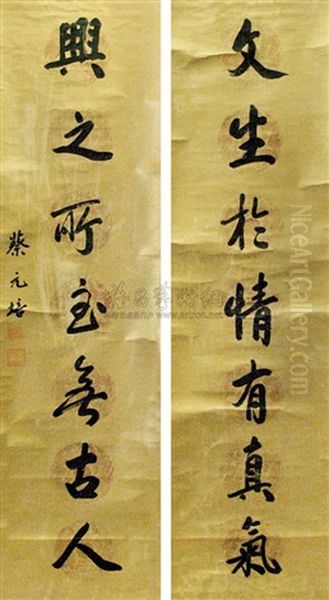 文生於情有真氣
興之所至無古人
蔡元培
NiceArtGallery.com